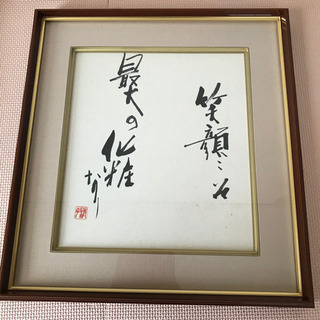 笑顔こそ
最大の化粧なり